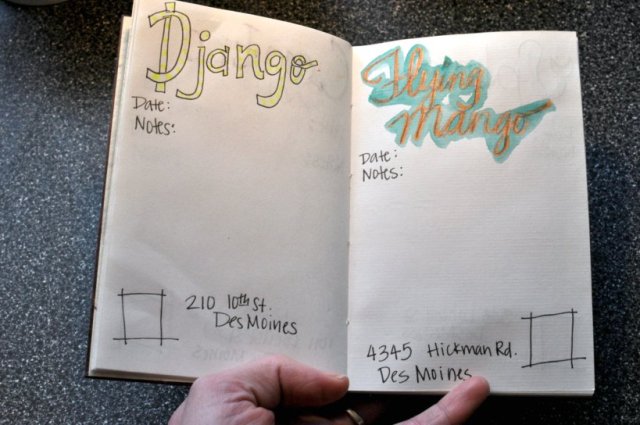 Django
Date:
Notes:
210 10th St.
Des Moines
Flying
Mango
Date:
Notes:
4345 Hickman Rd.
Des Moines